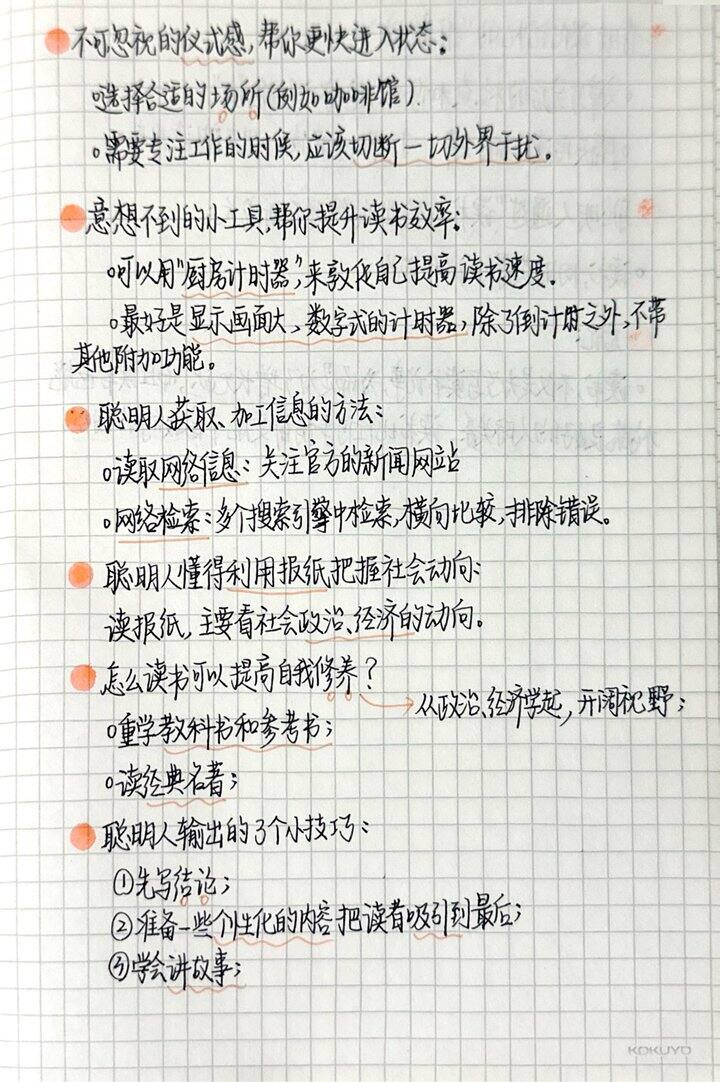 不可忽视的仪式感,帮你更快进入状态:
○选择合适的场所(例如咖啡馆).
○需要专注工作的时候,应该切断一切外界干扰。
意想不到的小工具,帮你提升读书效率:
○可以用“厨房计时器”,来敦促自己提高读书速度.
○最好是显示画面大、数字式的计时器,除了倒计时之外,不带
其他附加功能。
聪明人获取、加工信息的方法:
○读取网络信息:关注官方的新闻网站
○网络检索:多个搜索引擎中检索,横向比较,排除错误。
聪明人懂得利用报纸把握社会动向:
读报纸,主要看社会政治、经济的动向。
怎么读书可以提高自我修养?
→从政治、经济学起,开阔视野;
○重学教科书和参考书;
○读经典名著;
聪明人输出的3个小技巧:
①先写结论;
②准备一些个性化的内容把读者吸引到最后;
③学会讲故事;
KOKUYO